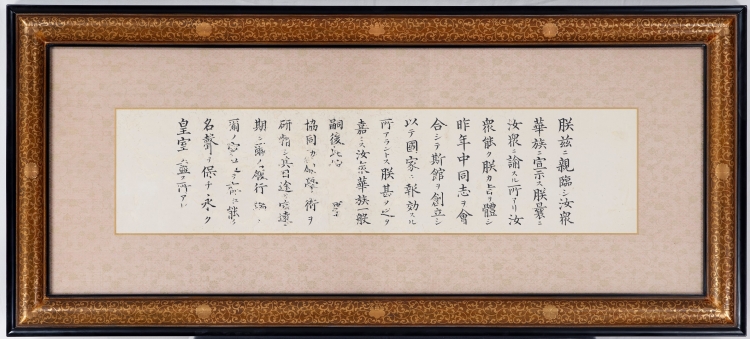 朕茲ニ親臨シ汝衆
華族ニ宣示ス朕曩ニ
汝衆ニ諭スル所アリ汝
衆能ク朕カ旨ヲ體シ
昨年中同志ヲ會
合シテ斯館ヲ創立シ
以テ國家ニ報効スル
所アラントス朕甚タ之ヲ
嘉ミス汝衆華族一般
嗣後
協同 學術ヲ
研精シ其目途ヲ宏遠ニ
期シ
爾ノ
名聲ヲ保チ永ク
皇室 益ス所アレ